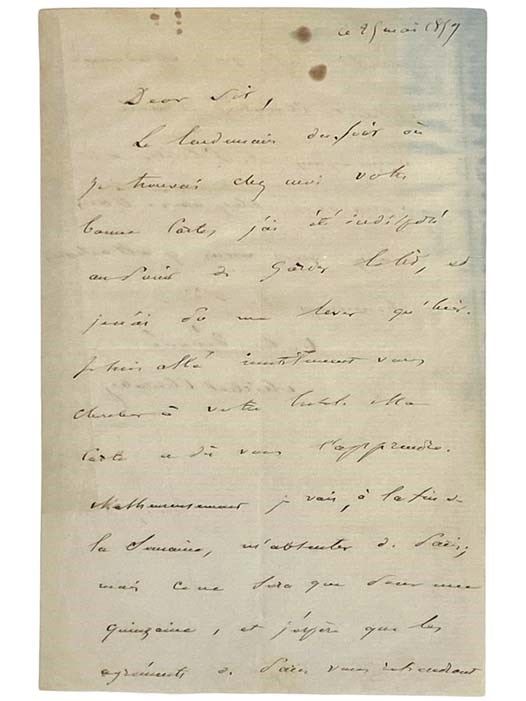 ce 25 mai 1857
Dear Sir,
Le lendemain du soir où
je trouvais chez moi votre
bonne carte, j'ai été indisposé
au point de garder le lit, et
je n'ai pu me lever qu'hier.
Je suis allé inutilement vous
chercher à votre hotel. Ma
carte a dû vous l'apprendre.
Malheureusement je vais, à la fin de
la Semaine, m'absenter de Paris;
mais ce ne sera que pour une
quinzaine, et j'espère que les
agréments de Paris vous retiendront